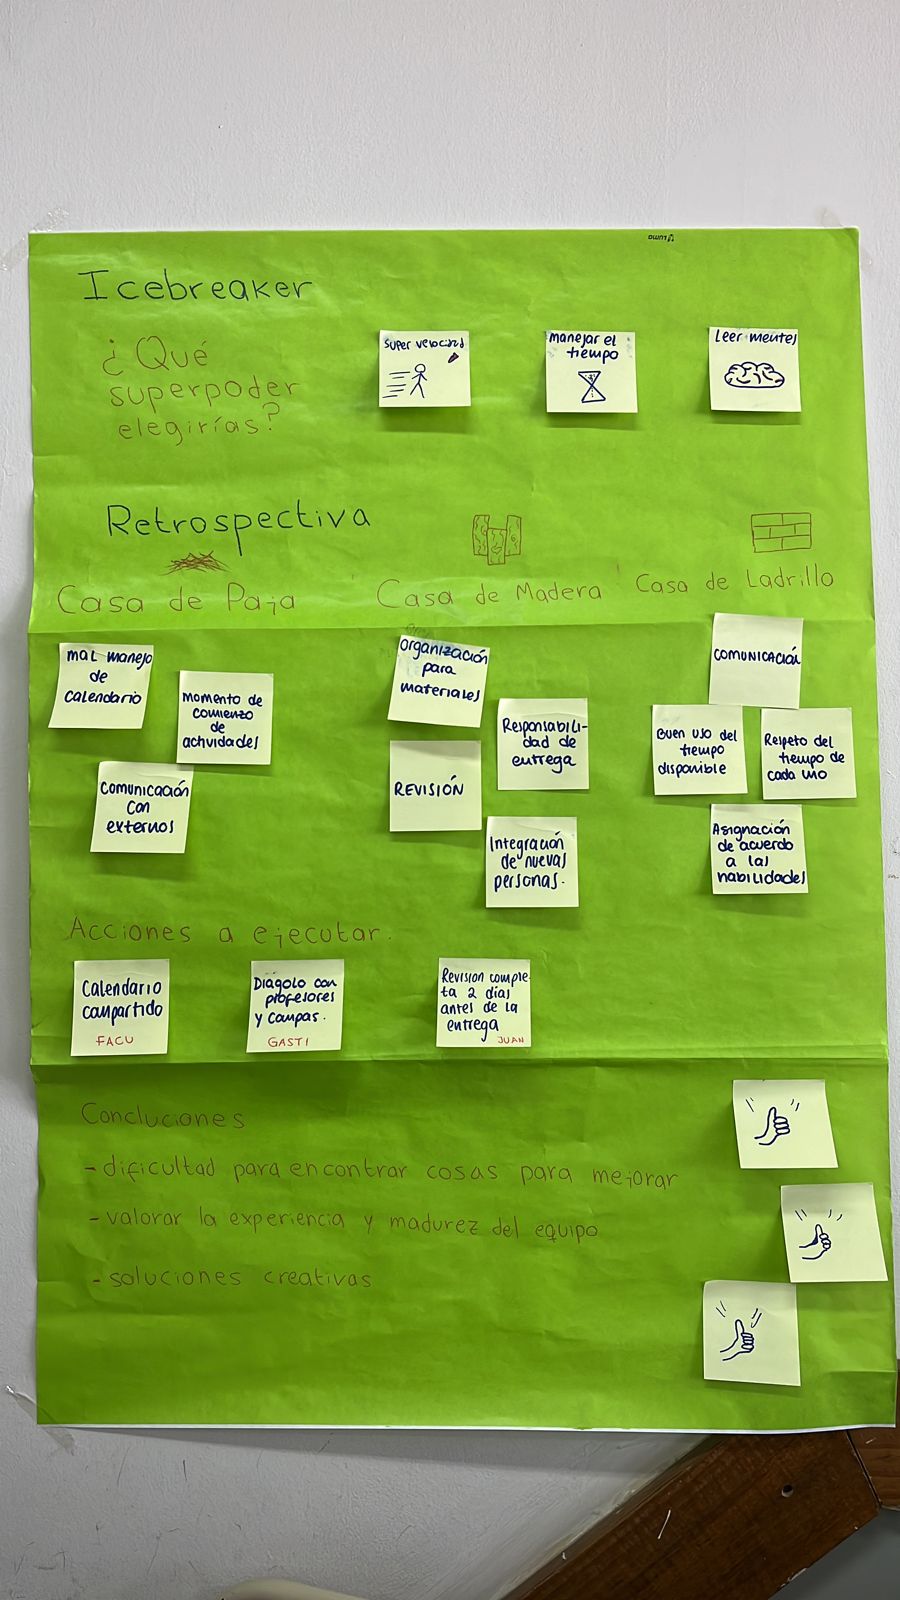 LUMA
Icebreaker
¿Qué
superpoder
elegirías?
super velocidad
manejar el
tiempo
Leer mentes
Retrospectiva
Casa de Paja
Casa de Madera
Casa de Ladrillo
mal manejo
de
calendario
Momento de
comienzo
de
actividades
Comunicación
con
externos
organización
para
materiales
Responsabili-
dad de
entrega
REVISIÓN
Integración
de nuevas
personas.
COMUNICACIÓN
Buen uso del
tiempo
disponible
Respeto del
tiempo de
cada uno
Asignación
de acuerdo
a las
habilidades
Acciones a ejecutar.
Calendario
compartido
FACU
Diágolo con
profesores
y compas.
GASTI
Revisión comple-
ta 2 días
antes de la
entrega
JUAN
Concluciones
- dificultad para encontrar cosas para mejorar
- valorar la experiencia y madurez del equipo
- soluciones creativas